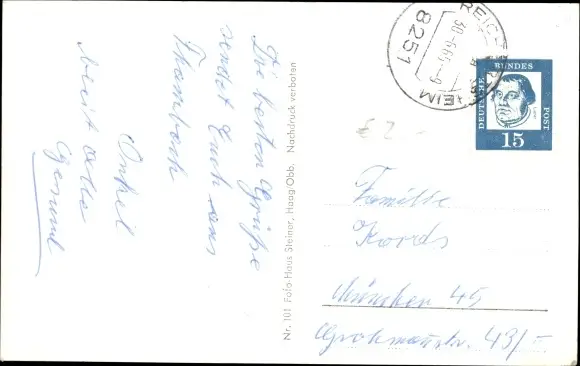 Die besten Grüße
sendet Euch aus
Thambach
Onkel
seid alle
Gesund
Nr. 101 Foto-Haus Steiner, Haag/Obb. Nachdruck verboten
8251
30.-6.65.-9
HEIM
DEUTSCHE
BUNDES
POST
15
£ 2 -
Familie
Kords
München 45
Grohmannstr. 43/II